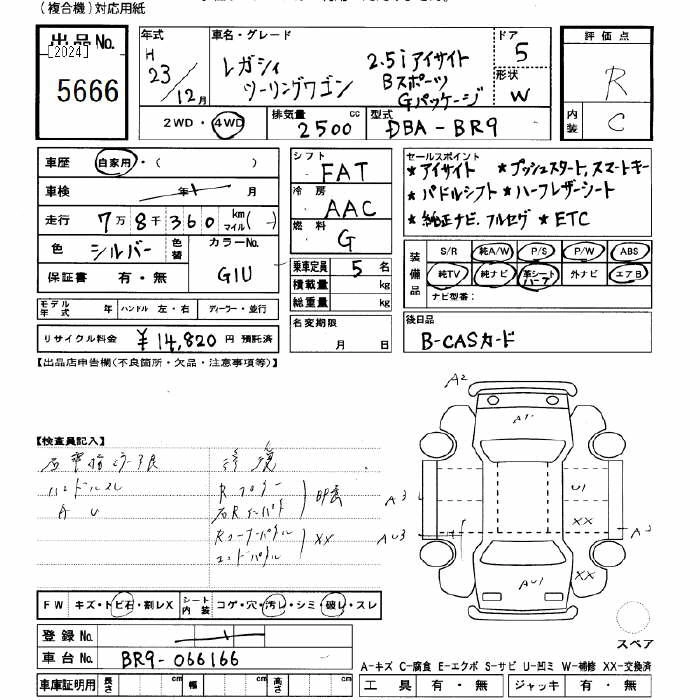 (複合機)対応用紙
出品No.
[2024]
5666
年式
H
23/12月
車名・グレード
レガシィ
ツーリングワゴン
2.5i アイサイト
Bスポーツ
Gパッケージ
ドア
5
形状
W
2WD・4WD
排気量
2500 cc
型式
DBA-BR9
評価点
R
内装
C
車歴 自家用・( )
車検 年 月
走行 7万8千360 km マイル(-)
色 シルバー 色替
カラーNo.
G1U
保証書 有・無
モデル年式 年 ハンドル 左・右 ディーラー・並行
リサイクル料金 ¥14,820円 預託済
シフト
FAT
冷房
AAC
燃料
G
乗車定員 5 名
積載量 kg
総重量 kg
名変期限
月 日
セールスポイント
★アイサイト ★プッシュスタート,スマートキー
★パドルシフト ★ハーフレザーシート
★純正ナビ.フルセグ ★ETC
装備品
S/R 純A/W P/S P/W ABS
純TV 純ナビ 革シート ハーフ 外ナビ エアB
ナビ型番:
後日品
B-CASカード
【出品店申告欄(不良箇所・欠品・注意事項等)】
【検査員記入】
ハンドルスレ
A U
XX
A2
A1
A3
AU3
U1
XX
XX
AU1
スペア
FW キズ・トビ石・割レX
シート内装 コゲ・穴・汚レ・シミ・破レ・スレ
登録No.
車台No. BR9-066166
車庫証明用 長さ cm 幅 cm 高さ cm
A-キズ C-腐食 E-エクボ S-サビ U-凹ミ W-補修 XX-交換済
工具 有・無 ジャッキ 有・無